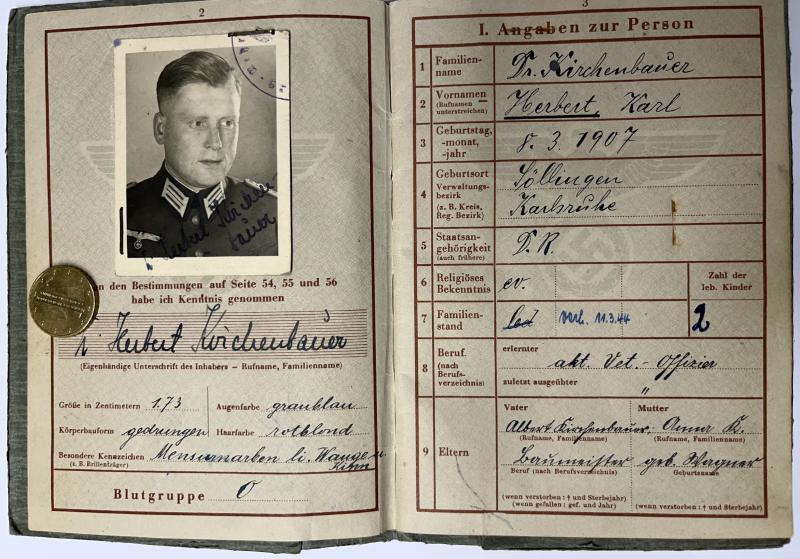 2
Von den Bestimmungen auf Seite 54, 55 und 56
habe ich Kenntnis genommen
Dr. Herbert Kirchenbauer
(Eigenhändige Unterschrift des Inhabers – Rufname, Familienname)
Größe in Zentimetern 1.73 Augenfarbe graublau
Körperbauform gedrungen Haarfarbe rotblond
Besondere Kennzeichen Mensurnarben li. Wange u.
(z. B. Brillenträger) Kinn
Blutgruppe O
3
I. Angaben zur Person
1 Familien-
name
Dr. Kirchenbauer
2 Vornamen
(Rufnamen
unterstreichen)
Herbert, Karl
3 Geburtstag,
-monat,
-jahr
8. 3. 1907
4 Geburtsort
Verwaltungs-
bezirk
(z. B. Kreis,
Reg. Bezirk)
Söllingen
Karlsruhe
5 Staatsan-
gehörigkeit
(auch frühere)
D. R.
6 Religiöses
Bekenntnis
ev.
Zahl der
leb. Kinder
7 Familien-
stand
led verh. 11.3.44
2
8 Beruf
(nach
Berufs-
verzeichnis)
erlernter
akt. Vet.-Offizier
zuletzt ausgeübter "
9 Eltern
Vater Mutter
Albert Kirchenbauer Anna K.
(Rufname, Familienname) (Rufname, Familienname)
Baumeister geb. Wagner
Beruf (nach Berufsverzeichnis) Geburtsname
(wenn verstorben: † und Sterbejahr)
(wenn gefallen: gef. und Jahr)
(wenn verstorben: † und Sterbejahr)